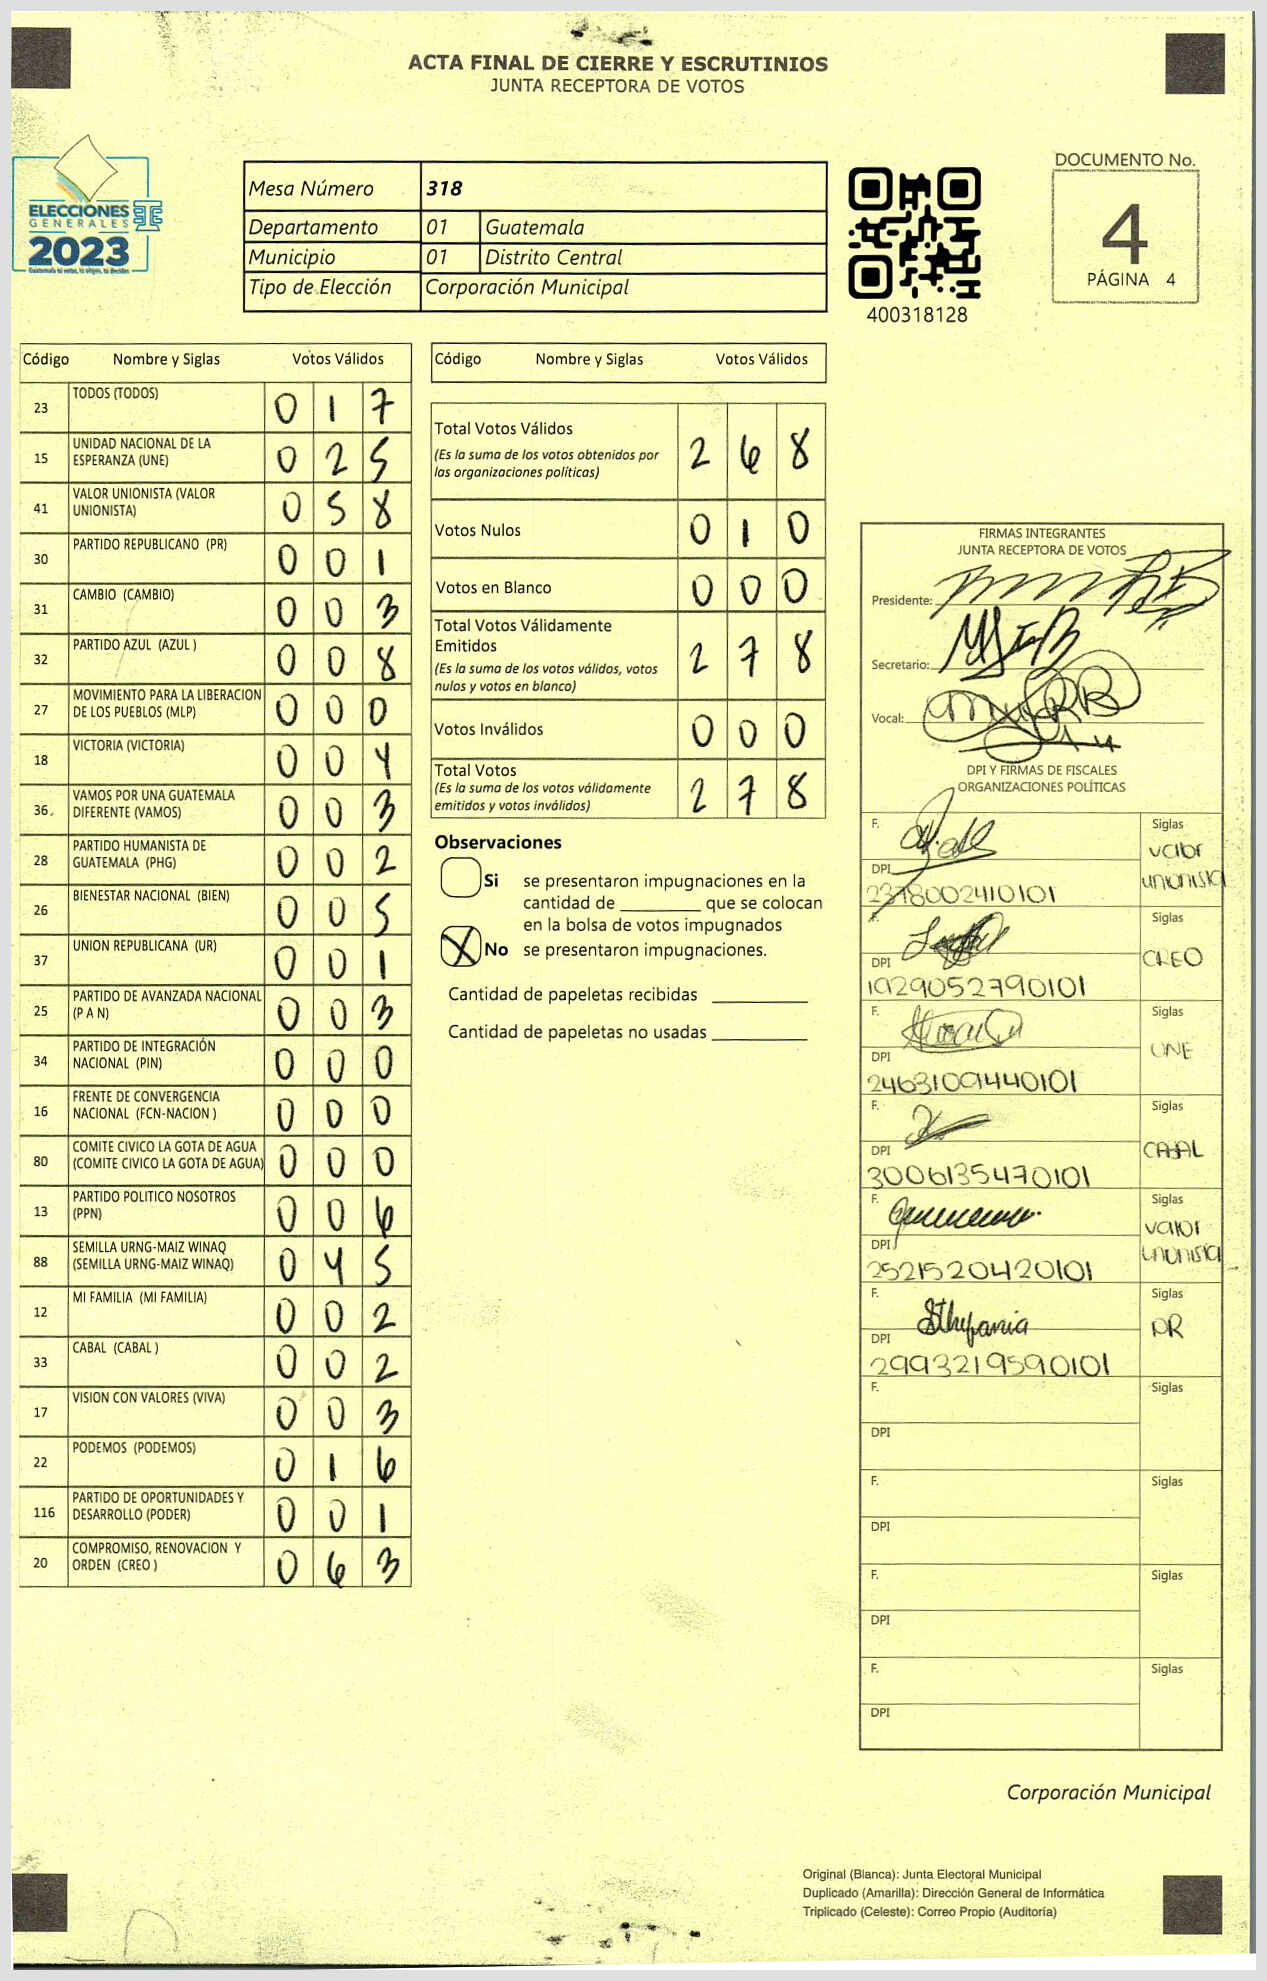 ACTA FINAL DE CIERRE Y ESCRUTINIOS
JUNTA RECEPTORA DE VOTOS
ELECCIONES
GENERALES
2023
Guatemala tú votas, tú eliges, tú decides
Mesa Número 318
Departamento 01 Guatemala
Municipio 01 Distrito Central
Tipo de Elección Corporación Municipal
400318128
DOCUMENTO No.
4
PÁGINA 4
Código Nombre y Siglas Votos Válidos
23 TODOS (TODOS) 0 1 7
15 UNIDAD NACIONAL DE LA ESPERANZA (UNE) 0 2 5
41 VALOR UNIONISTA (VALOR UNIONISTA) 0 5 8
30 PARTIDO REPUBLICANO (PR) 0 0 1
31 CAMBIO (CAMBIO) 0 0 3
32 PARTIDO AZUL (AZUL ) 0 0 8
27 MOVIMIENTO PARA LA LIBERACION DE LOS PUEBLOS (MLP) 0 0 0
18 VICTORIA (VICTORIA) 0 0 4
36 VAMOS POR UNA GUATEMALA DIFERENTE (VAMOS) 0 0 3
28 PARTIDO HUMANISTA DE GUATEMALA (PHG) 0 0 2
26 BIENESTAR NACIONAL (BIEN) 0 0 5
37 UNION REPUBLICANA (UR) 0 0 1
25 PARTIDO DE AVANZADA NACIONAL (P A N) 0 0 3
34 PARTIDO DE INTEGRACIÓN NACIONAL (PIN) 0 0 0
16 FRENTE DE CONVERGENCIA NACIONAL (FCN-NACION ) 0 0 0
80 COMITE CIVICO LA GOTA DE AGUA (COMITE CIVICO LA GOTA DE AGUA) 0 0 0
13 PARTIDO POLITICO NOSOTROS (PPN) 0 0 6
88 SEMILLA URNG-MAIZ WINAQ (SEMILLA URNG-MAIZ WINAQ) 0 4 5
12 MI FAMILIA (MI FAMILIA) 0 0 2
33 CABAL (CABAL ) 0 0 2
17 VISION CON VALORES (VIVA) 0 0 3
22 PODEMOS (PODEMOS) 0 1 6
116 PARTIDO DE OPORTUNIDADES Y DESARROLLO (PODER) 0 0 1
20 COMPROMISO, RENOVACION Y ORDEN (CREO ) 0 6 3
Código Nombre y Siglas Votos Válidos
Total Votos Válidos 2 6 8
(Es la suma de los votos obtenidos por
las organizaciones políticas)
Votos Nulos 0 1 0
Votos en Blanco 0 0 0
Total Votos Válidamente
Emitidos 2 7 8
(Es la suma de los votos válidos, votos
nulos y votos en blanco)
Votos Inválidos 0 0 0
Total Votos
(Es la suma de los votos válidamente
emitidos y votos inválidos) 2 7 8
Observaciones
Si se presentaron impugnaciones en la
cantidad de ________ que se colocan
en la bolsa de votos impugnados
X No se presentaron impugnaciones.
Cantidad de papeletas recibidas
Cantidad de papeletas no usadas
FIRMAS INTEGRANTES
JUNTA RECEPTORA DE VOTOS
Presidente:
Secretario:
Vocal:
DPI Y FIRMAS DE FISCALES
ORGANIZACIONES POLÍTICAS
F. Siglas
valor
unionista
DPI
2378002410101
F. Siglas
CREO
DPI
1929052790101
F. Siglas
UNE
DPI
2463109440101
F. Siglas
CABAL
DPI
3006135470101
F. Siglas
valor
unionista
DPI
2521520420101
F. Sthepania Siglas
PR
DPI
2993219590101
F. Siglas
DPI
F. Siglas
DPI
F. Siglas
DPI
F. Siglas
DPI
Corporación Municipal
Original (Blanca): Junta Electoral Municipal
Duplicado (Amarilla): Dirección General de Informática
Triplicado (Celeste): Correo Propio (Auditoría)